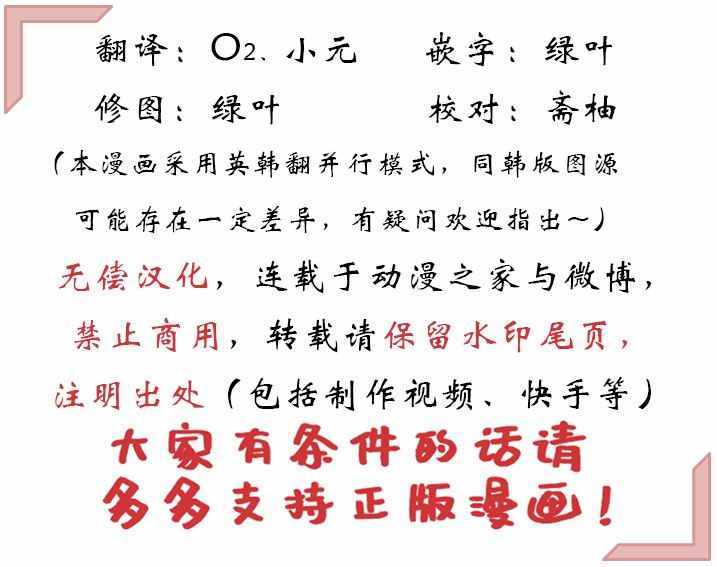 翻译：O2、小元 嵌字：绿叶
修图：绿叶 校对：斋柚
（本漫画采用英韩翻并行模式，同韩版图源
可能存在一定差异，有疑问欢迎指出～）
无偿汉化，连载于动漫之家与微博，
禁止商用，转载请保留水印尾页，
注明出处（包括制作视频、快手等）
大家有条件的话请
多多支持正版漫画！